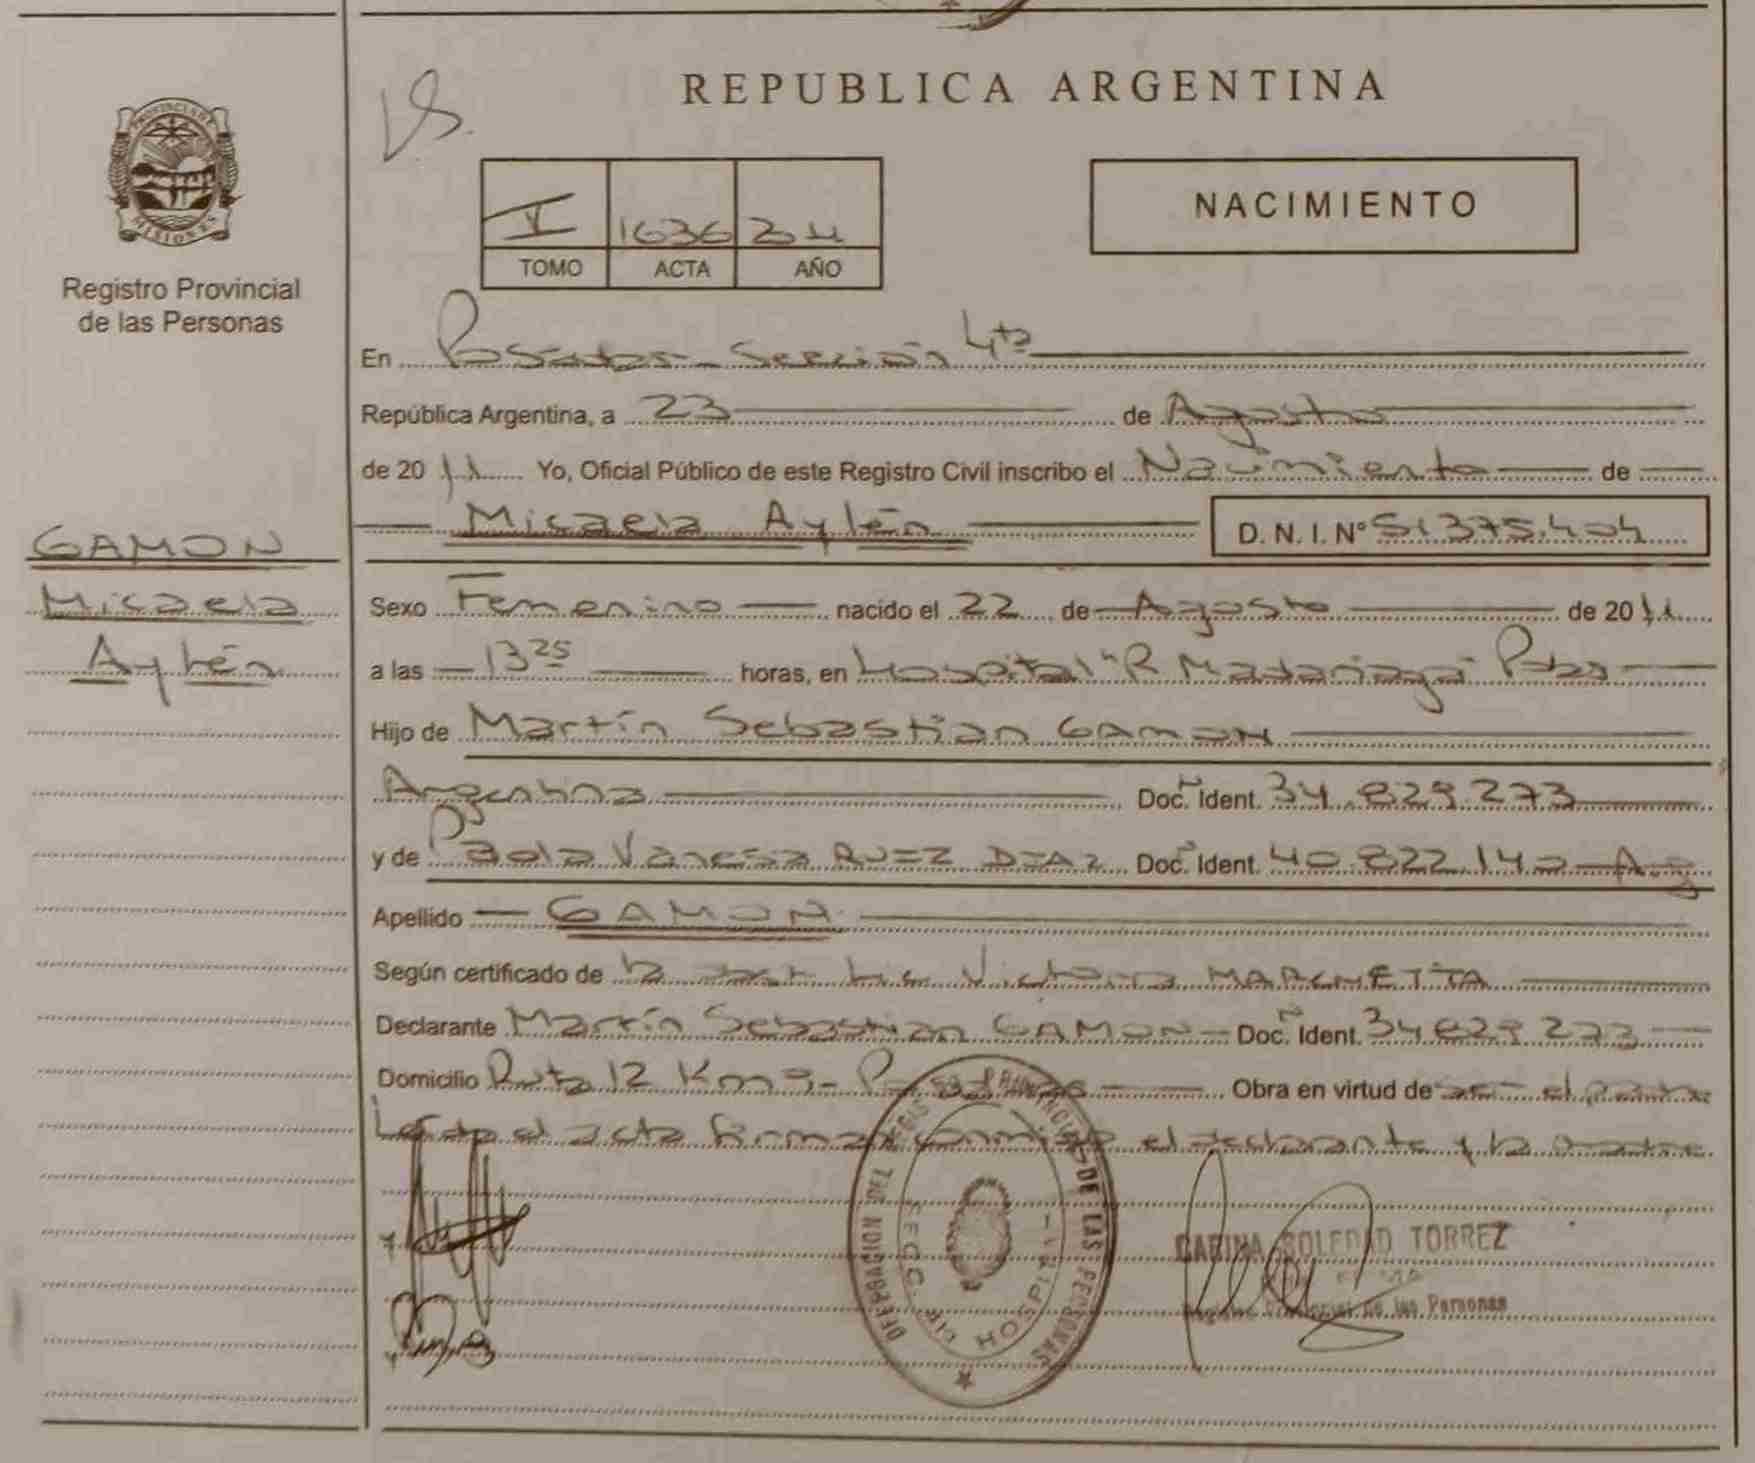 REPUBLICA ARGENTINA
PROVINCIA DE MISIONES
Registro Provincial
de las Personas
1636
TOMO ACTA AÑO
NACIMIENTO
En Posadas - Sección 4ta
República Argentina, a 23 de Agosto
de 2011 Yo, Oficial Público de este Registro Civil inscribo el Nacimiento de
Micaela Aylén D. N. I. Nº 51.375.404
GAMON
Micaela
Aylén
Sexo Femenino nacido el 22 de Agosto de 2011
a las 13 25 horas, en Hospital "R Madariaga" Pdas
Hijo de Martín Sebastian GAMON
Argentina Doc. Ident. 34.829.273
y de Paola Vanesa RUIZ DIAZ Doc. Ident. 40.822.140 Arg
Apellido GAMON
Según certificado de Victoria MARCHETTA
Declarante Martín Sebastian GAMON Doc. Ident. 34.829.273
Domicilio Ruta 12 Km Obra en virtud de ser el padre
Leida el acta firman conmigo el declarante y la madre
DELEGACION DEL REGIS. PROVINCIAL DE LAS PERSONAS
SECC. HOSPITAL
CARINA SOLEDAD TORREZ
Registro Provincial de las Personas